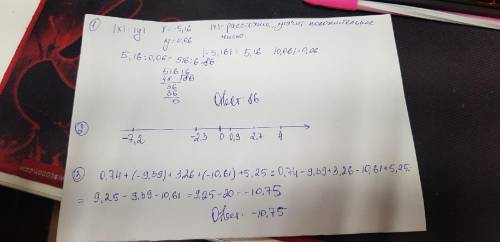 ① |x| : |y|  x = -5,16  |x| - расстояние, значит положительное
y = 0,06  число.
|-5,16| = 5,16  |0,06| = 0,06
5,16 : 0,06 = 516 : 6 = 86
516 6
48 86
36
36
0
Ответ 86
②
-7,2 -2,3 0 0,9 2,7 4
③ 0,74 + (-9,39) + 3,26 + (-10,61) + 5,25 = 0,74 - 9,39 + 3,26 - 10,61 + 5,25
= 9,25 - 9,39 - 10,61 = 9,25 - 20 = -10,75
Ответ: -10,75